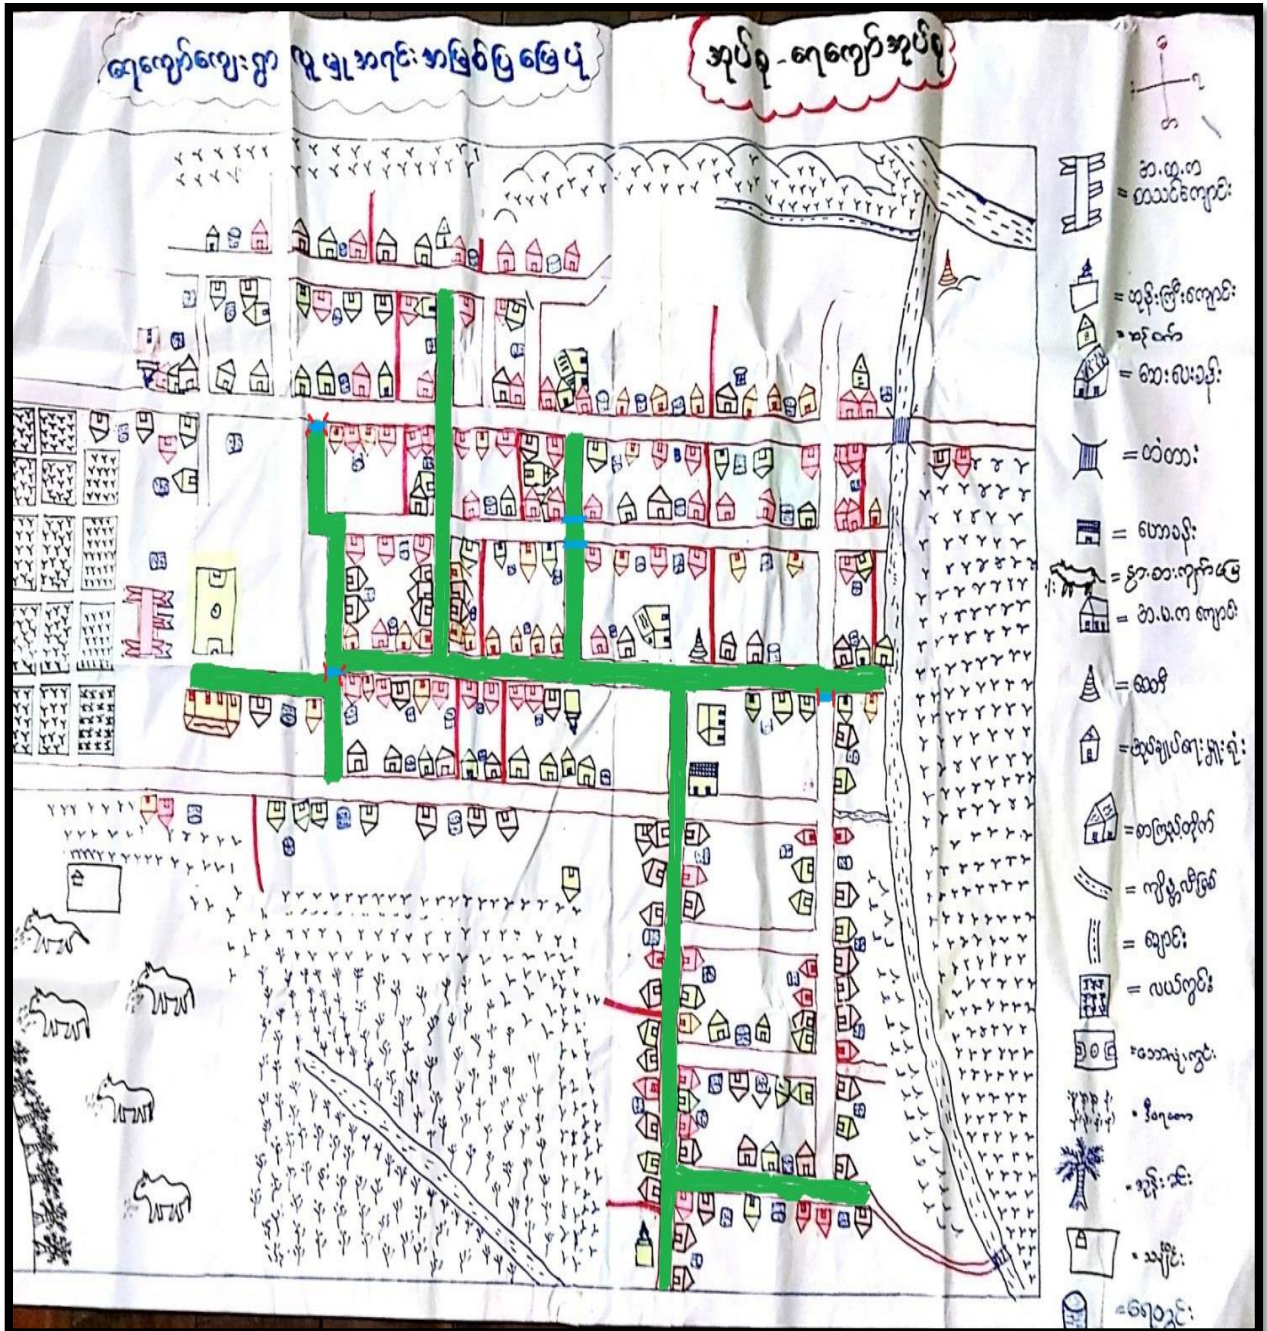 ရေကျော်ကျေးရွာ လူမှုအရင်းအမြစ်ပြမြေပုံ
အုပ်စု - ရေကျော်အုပ်စု
အ.ထ.က
စာသင်ကျောင်း
= ဘုန်းကြီးကျောင်း
= ဆန်စက်
= ဆေးပေးခန်း
= တံတား
= ဟောခန်း
= နွားစားကျက်မြေ
= အ.မ.က ကျောင်း
= စေတီ
= အုပ်ချုပ်ရေးမှူးရုံး
= စာကြည့်တိုက်
= ချောင်း
= လယ်ကွင်း
= ဘောလုံးကွင်း
= ဒီရေတော
= အုန်းပင်
= သင်္ချိုင်း
= ရေတွင်း